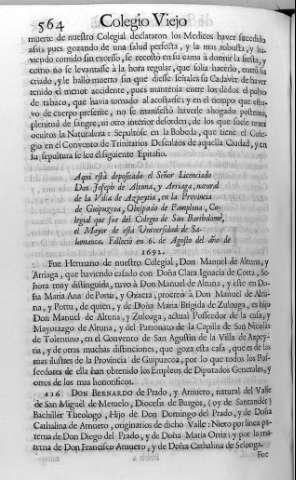 564 Colegio Viejo
muerte de nuestro Colegial declararon los Medicos haver sucedido
assi; pues gozando de una salud perfecta, y la mas robusta, y ha-
viendo comido sin excesso, se recostò en su cama à dormir la siesta, y
como no se levantasse à la hora regular, que solia hacerlo, entrò su
criado, y le hallò muerto sin que diesse señales su Cadaver de haver
tenido el menor accidente, pues mantenia entre los dedos el polvo
de tabaco, que havia tomado al acostarse; y en el tiempo que estu-
vo de cuerpo presente, no se manifestò haverle ahogado postema,
plenitud de sangre, ni otro interior desorden, de los que suele tener
ocultos la Naturaleza: Sepultòse en la Boveda, que tiene el Cole-
gio en el Convento de Trinitarios Descalzos de aquella Ciudad, y en
su sepultura se lee el siguiente Epitafio.
Aqui està depositado el Señor Licenciado
Don Joseph de Altuna, y Arriaga, natural
de la Villa de Azpeytia, en la Provincia
de Guipuzcoa, Obispado de Pamplona, Co-
legial que fue del Colegio de San Bartholomè,
el Mayor de esta Universidad de Sa-
lamanca. Falleciò en 6. de Agosto del año de
1692.
Fue Hermano de nuestro Colegial, Don Manuel de Altuna, y
Arriaga, que haviendo casado con Doña Clara Ignacia de Corta, Se-
ñora muy distinguida, tuvo à Don Manuel de Altuna, y este en Do-
ña Maria Ana de Portu, y Oxirena, procreò à Don Manuel de Altu-
na, y Portu, de quien, y de Doña Maria Brigida de Zuloaga, es hijo
Don Manuel de Altuna, y Zuloaga, actual Posseedor de la casa, y
Mayorazgo de Altuna, y del Patronato de la Capilla de San Nicolàs
de Tolentino, en el Convento de San Agustin de la Villa de Azpey-
tia, y de otras muchas distinciones, que goza esta casa, que es de las
mas ilustres de la Provincia de Guipuzcoa, por lo que todos los Pos-
seedores de ella han obtenido los Empleos de Diputados Generales, y
otros de los mas honorificos.
426 DON BERNARDO de Prado, y Arnuero, natural del Valle
de San Miguèl de Meruelo, Diocesis de Burgos, (oy de Santander)
Bachillèr Theologo, Hijo de Don Domingo del Prado, y de Doña
Cathalina de Arnuero, originarios de dicho Valle: Nieto por linea pa-
terna de Don Diego del Prado, y de Doña Maria Ortiz; y por la ma-
terna de Don Francisco Arnuero, y de Doña Cathalina de Solorga.
Fue